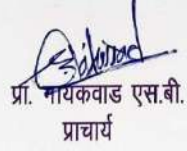 प्रा. गायकवाड एस.बी.
प्राचार्य